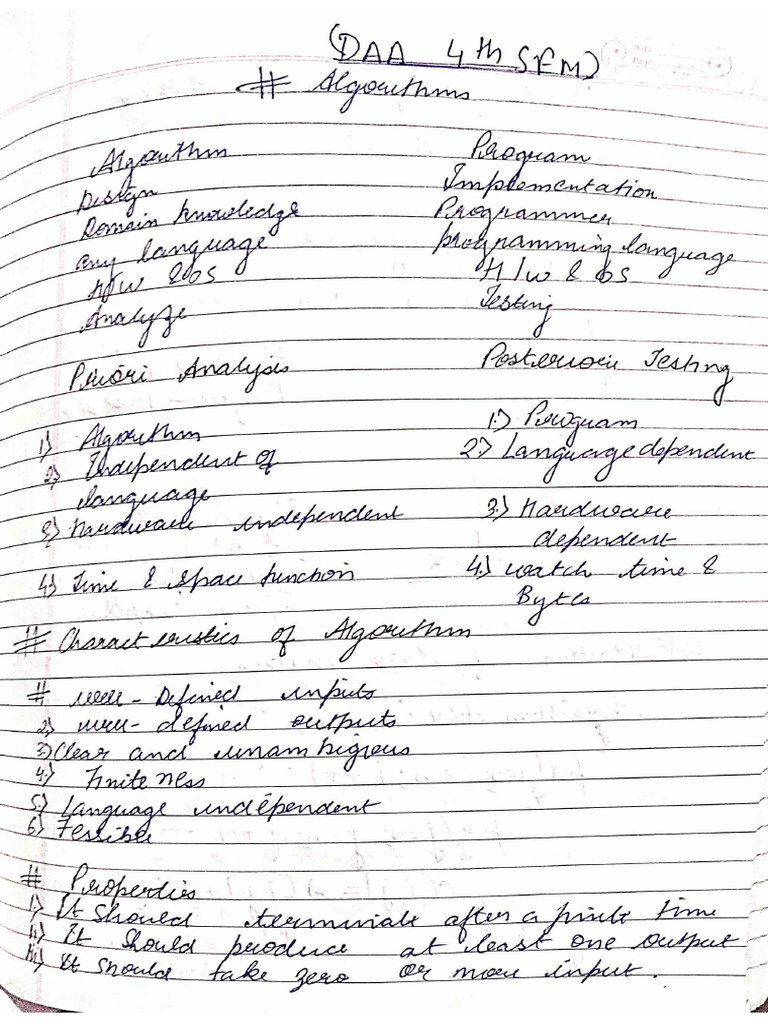 (DAA 4th SEM)
# Algorithms
Algorithm Program
Design Implementation
Domain knowledge Programmer
any language programming language
H/W & OS H/W & OS
Analyze Testing
Priori Analysis Posteriori Testing
1) Algorithm 1.) Program
2) Independent of 2.) Language dependent
language
3.) Hardware independent 3.) Hardware
dependent
4.) Time & space function 4.) watch time &
Bytes
# Characteristics of Algorithm
# well-Defined inputs
2) well-defined outputs
3) Clear and unambigious
4.) Finiteness
5.) Language independent
6) Fessible
# Properties
1.) It should terminate after a finite time
It should produce at least one output
It should take zero or more input.